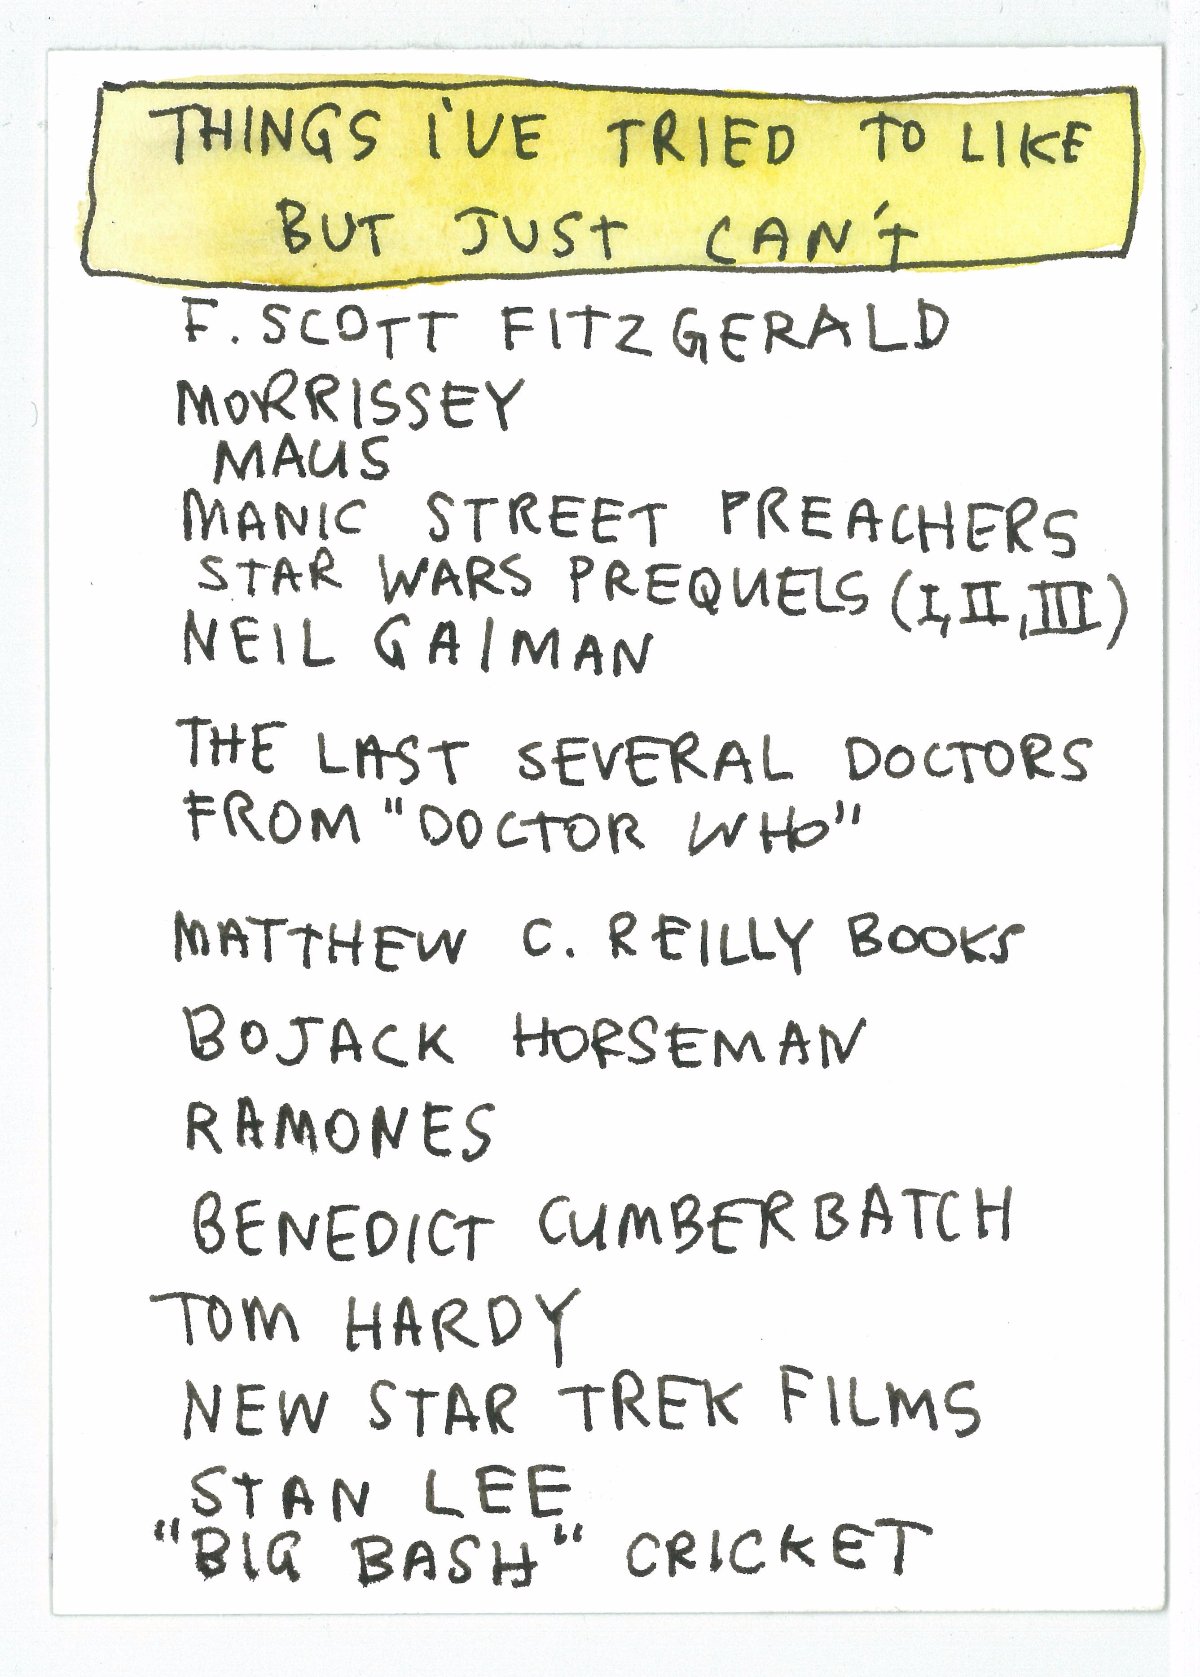 THINGS I'VE TRIED TO LIKE
BUT JUST CAN'T
F. SCOTT FITZGERALD
MORRISSEY
MAUS
MANIC STREET PREACHERS
STAR WARS PREQUELS (I, II, III)
NEIL GAIMAN
THE LAST SEVERAL DOCTORS
FROM "DOCTOR WHO"
MATTHEW C. REILLY BOOKS
BOJACK HORSEMAN
RAMONES
BENEDICT CUMBERBATCH
TOM HARDY
NEW STAR TREK FILMS
STAN LEE
"BIG BASH" CRICKET